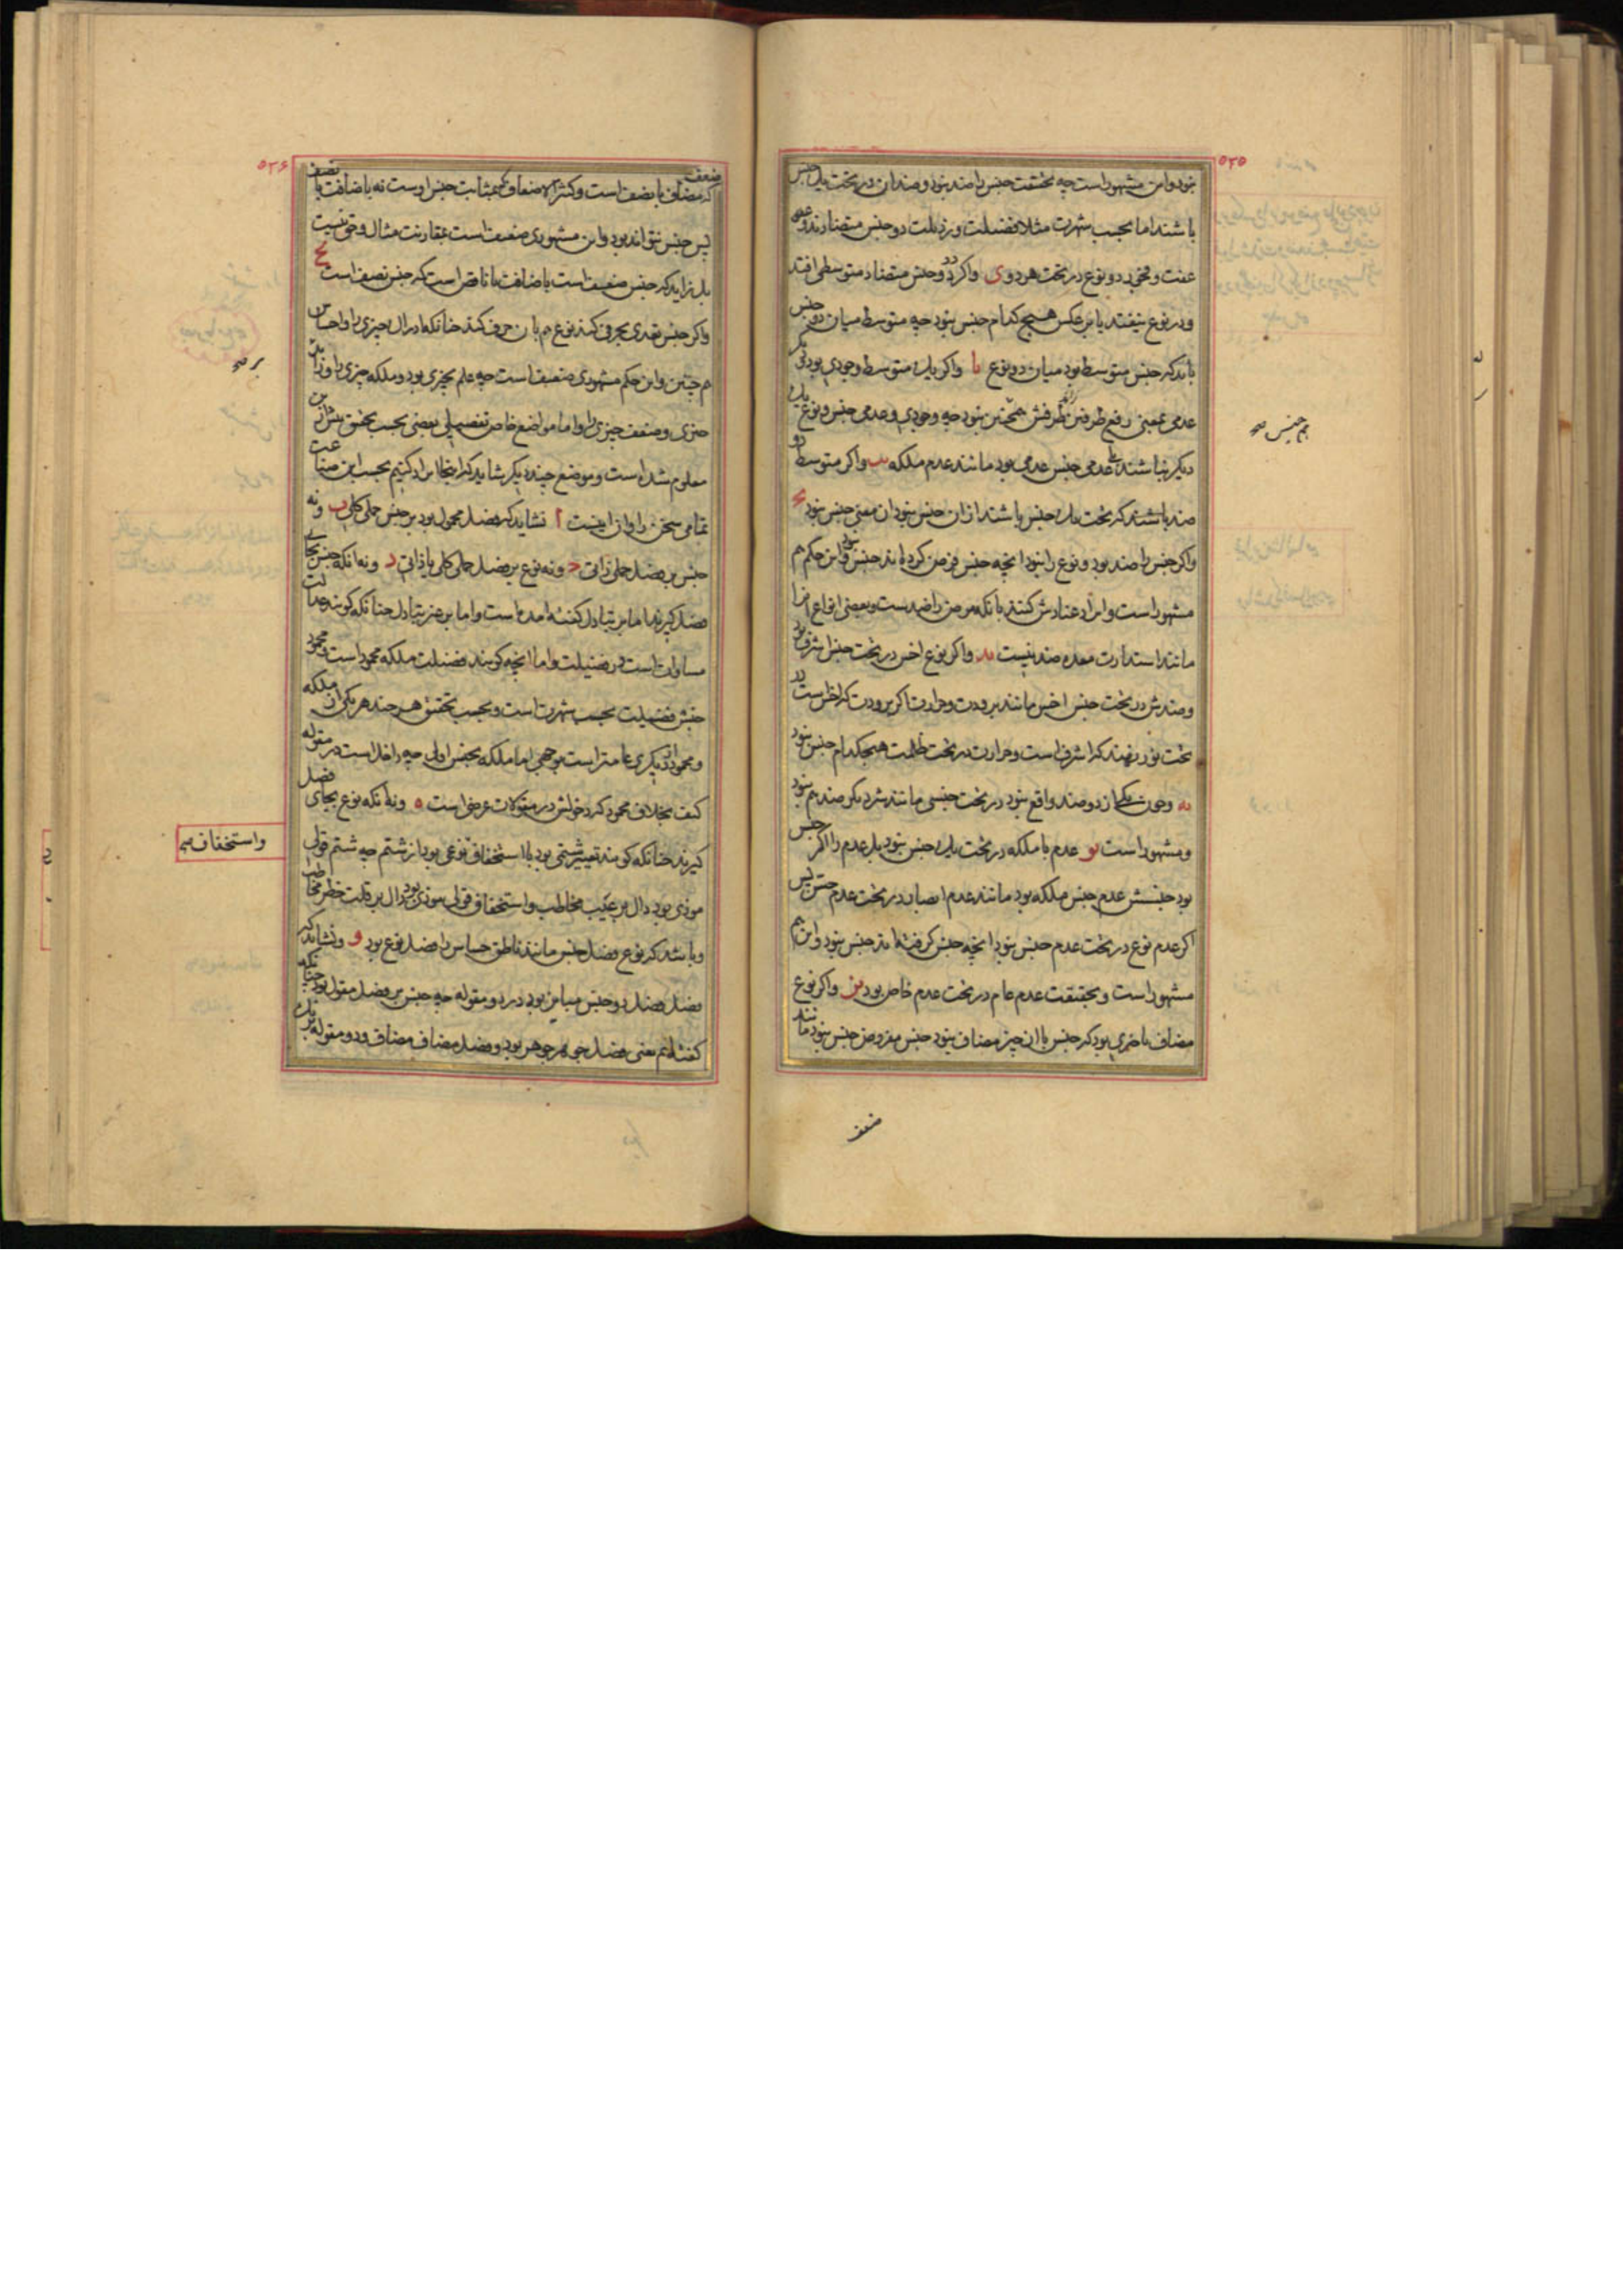 ۵۲۵
نبود و این مشهور است چه بحقیقت جنس را ضد نبود و ضدان در تحت یک جنس
باشند اما بحسب شهرت مثلا فضیلت و رذیلت دو جنس متضادند و
عفت و فجور دو نوع در تحت هر دو ی واگر در دو جنس متضاد متوسطی افتد
و در نوع نیفتد یا بر عکس هیچ کدام جنس نبود چه متوسط میان دو جنس
باید که جنس متوسط بود میان دو نوع یا واگر یک متوسط وجودی بود و دیگر
عدمی بمعنی رفع طرفین طرفش همچنین نبود چه وجودی و عدمی جنس و نوع یک
دیگر نباشند بلی عدمی جنس عدمی بود مانند عدم ملکه یب واگر متوسط دو
ضد باشند که تحت یک جنس باشند ازان جنس نبود ان معنی جنس نبود یج
واگر جنس را ضد بود و نوع را نبود انچه جنس فرض کرده اند جنس نبود و این حکم هم
مشهور است و ایراد عنادش کنند بانکه مرض را ضد است و بعضی انواع انرا
مانند استدارت معده ضد نیست ید واگر نوع اخس در تحت جنس اشرف بود
و ضدش در تحت جنس اخس مانند برودت و حرارت اگر برودت که اخس است در
تحت نور نهند که اشرف است و حرارت در تحت ظلمت هیچکدام جنس نبود
یه و چون یکی از دو ضد واقع نبود در تحت جنسی مانند شر دیگر ضد هم نبود
و مشهور است یو عدم با ملکه در تحت یک جنس نبود بل عدم را اگر جنس
بود جنسش عدم جنس ملکه بود مانند عدم ابصار در تحت عدم حس پس
اگر عدم نوع در تحت عدم جنس نبود انچه جنس گرفته اند جنس نبود و این هم
مشهور است و بحقیقت عدم عام در تحت عدم خاص بود یز واگر نوع
مضاف باخری بود که جنس با ان چیز مضاف نبود جنس مفروض جنس نبود مانند
هم جنس صح
ضعف
۵۲۶
ضعف که مضاف با نصف است و کثیر الاضعاف که بمثابت جنس اوست نه باضافت با نصف
پس جنس نتواند بود و این مشهوری ضعیف است بمقارنت مثال و حق نیست
بل زاید که جنس ضعیف است باضافت با ناقص است که جنس نصف است یح
واگر جنس تعدی بحرفی کند نوع هم بان حرف کند چنانکه ادراک چیزی را و احساس
هم چنین و این حکم مشهوری ضعیف است چه علم بچیزی بود و ملکه چیزی را و
چیزی و ضعف چیزی را و اما مواضع خاص تفصیلی بعضی بحسب تحقیق پیش ازین
معلوم شده است و موضع چند دیگر شاید که اینجا ایراد کنیم بحسب این صناعت
تمامی سخن را و ان اینست ا نشاید که فصل محمول بود بر جنس حملی کلی ب و نه
جنس بر فصل حملی ذاتی ج و نه نوع بر فصل حملی کلی یا ذاتی د و نه انکه جنس بجای
فصل گیرند اما بر تبادل گفته امده است و اما بر غیر تبادل چنانکه گویند عدالت
مساوات است در فضیلت و اما انچه گویند فضیلت ملکه محمود است محمود
جنس فضیلت بحسب شهرت است و بحسب تحقیق هر چند هر یکی از ملکه
و محمود از دیگری عامتر است بوجهی اما ملکه بجنس اولی چه داخل است در مقوله
کیف بخلاف محمود که دخولش در مقولات عرضی است ه و نه انکه نوع بجای فصل
گیرند چنانکه گویند تعییر شتمی بود با استخفاف نوعی بود از شتم چه شتم قولی
موذی بود دال بر عیب مخاطب و استخفاف قولی موذی بود دال بر قلت خطر مخاطب
و باشد که نوع فصل جنس مانند ناطق حساس را فصل نوع بود و و نشاید که
فصل فصل دو جنس مباین بود در دو مقوله چه جنس بر فصل مقول بود چنانکه
گفته ایم یعنی فصل جوهر جوهر بود و فصل مضاف مضاف و دو مقوله بر یک
بر صح
واستخفاف صح